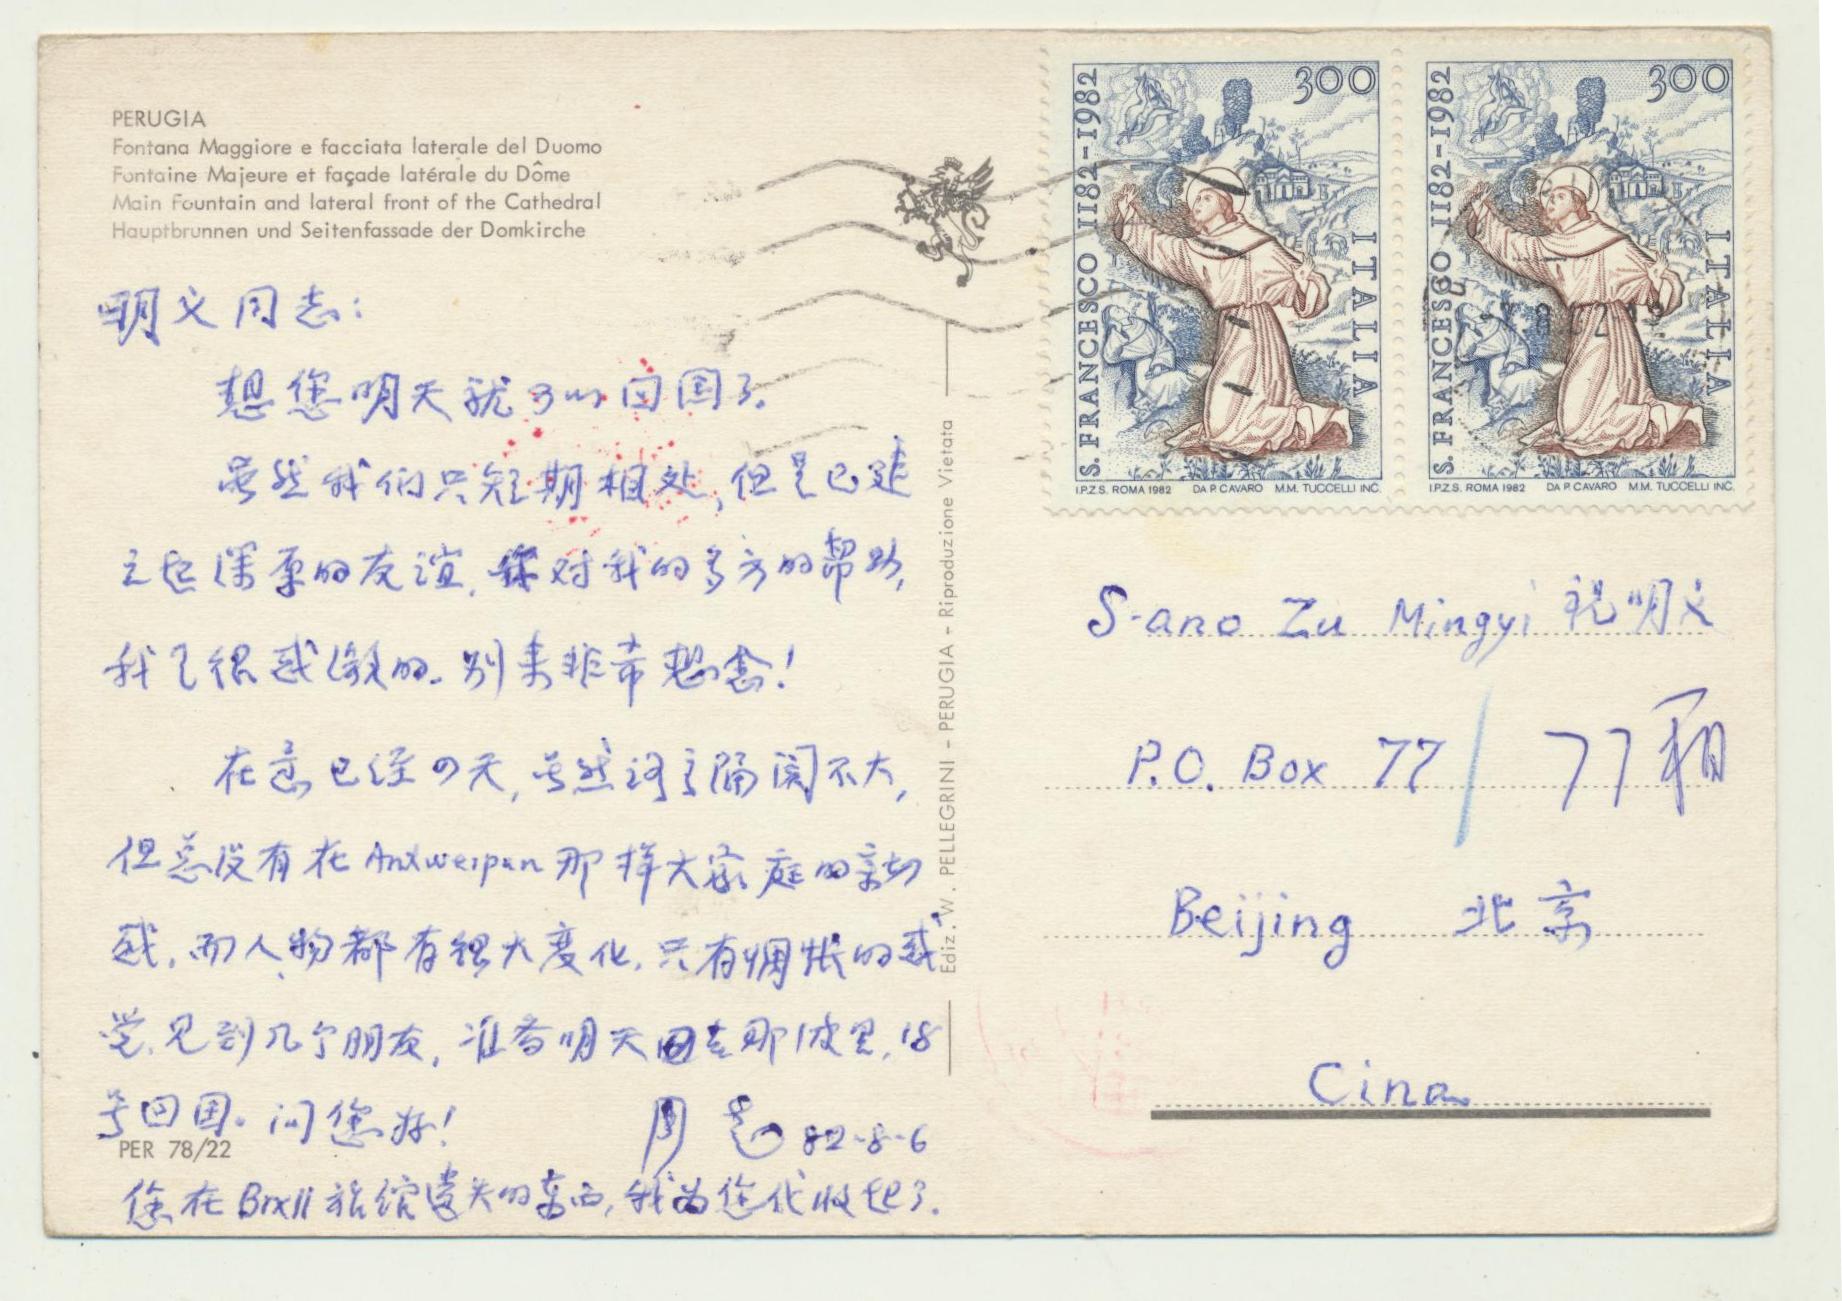 PERUGIA
Fontana Maggiore e facciata laterale del Duomo
Fontaine Majeure et façade latérale du Dôme
Main Fountain and lateral front of the Cathedral
Hauptbrunnen und Seitenfassade der Domkirche
明义同志:
想您明天就可以回国了.
虽然我们只短期相处,但是已建
立起深厚的友谊,你对我的多方的帮助,
我是很感激的.别来非常想念!
在意已经四天,虽然语言隔阂不大,
但总没有在Antwerpen那样大家庭的亲切
感.而人、物都有很大变化.只有惆怅的感
觉.见到几个朋友,准备明天去那波里,18
号回国.问您好!
周 82-8-6
您在Brxll旅馆遗失的东西,我为您代收起了.
PER 78/22
Ediz. W. PELLEGRINI - PERUGIA - Riproduzione Vietata
300
S. FRANCESCO 1182-1982
ITALIA
I.P.Z.S. ROMA 1982 DA P. CAVARO M.M. TUCCELLI INC.
300
S. FRANCESCO 1182-1982
ITALIA
I.P.Z.S. ROMA 1982 DA P. CAVARO M.M. TUCCELLI INC.
S-ano Zu Mingyi 祝明义
P.O. Box 77/77箱
Beijing 北京
Cina